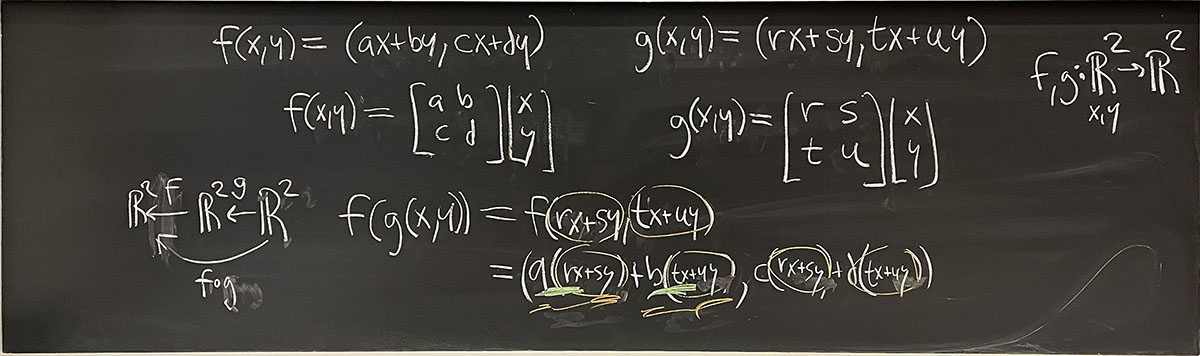 f(x,y) = (ax+by, cx+dy)
g(x,y) = (rx+sy, tx+uy)
f,g: ℝ² → ℝ²
x,y
f(x,y) = [a b; c d] [x; y]
g(x,y) = [r s; t u] [x; y]
ℝ² ←f ℝ² ←g ℝ²
f∘g
f(g(x,y)) = f(rx+sy, tx+uy)
= (a(rx+sy)+b(tx+uy), c(rx+sy)+d(tx+uy))